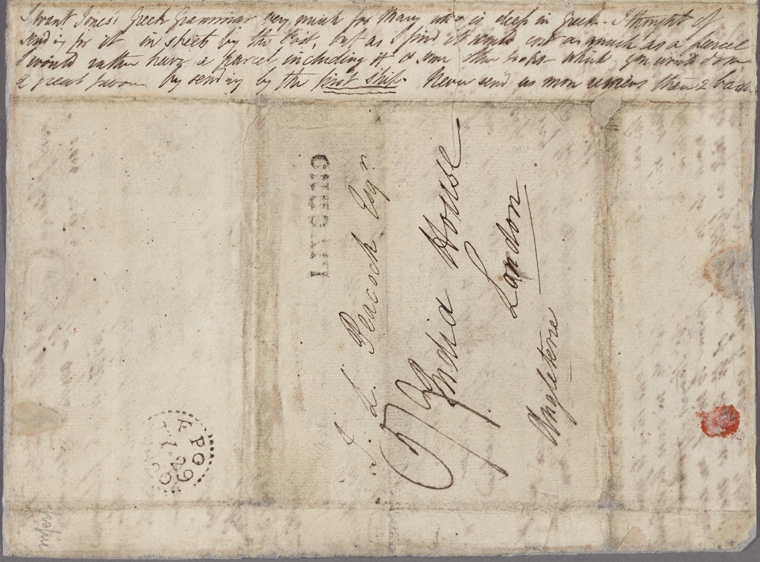 I want Jones's Greek Grammar very much for Mary who is deep in Greek. I thought of
sending for it in sheets by the Post, but as I find it would cost as much as a parcel
I would rather have a parcel including it & some other books which you would do me
a great favour by sending by the first Ship. Never send us more reviews than 2 back
LIVORNO
T. L. Peacock Esqr.
India House
London
Angleterre
FPO